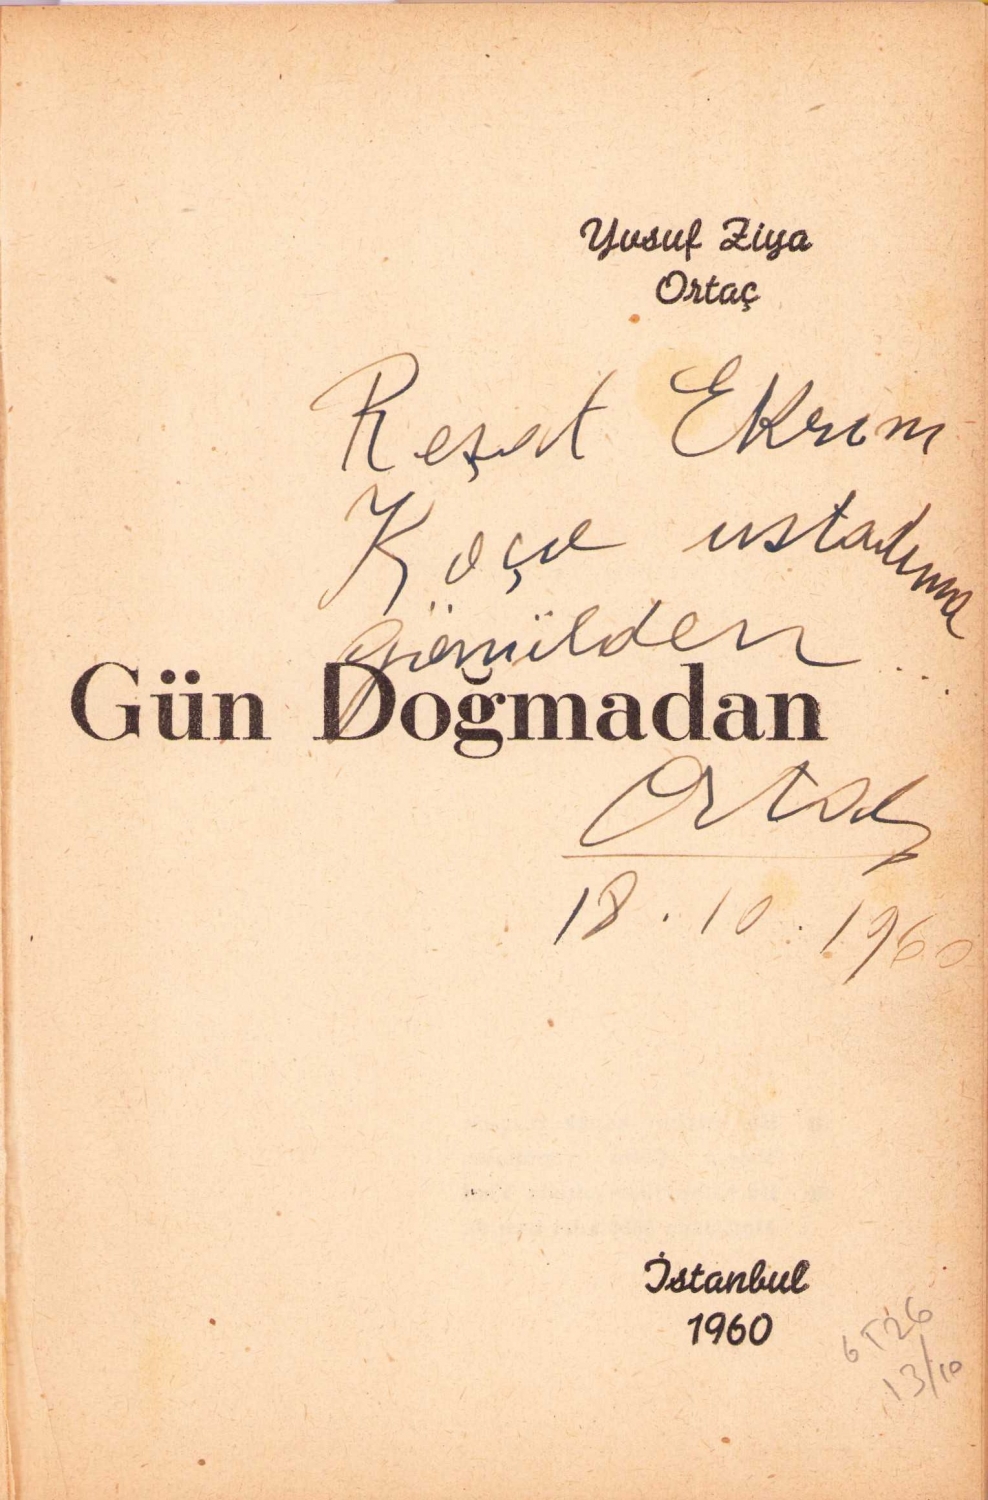 Yusuf Ziya
Ortaç
Reşat Ekrem
Koçu üstadıma
gönülden
Gün Doğmadan
Ortaç
18.10.1960
İstanbul
1960
13/10